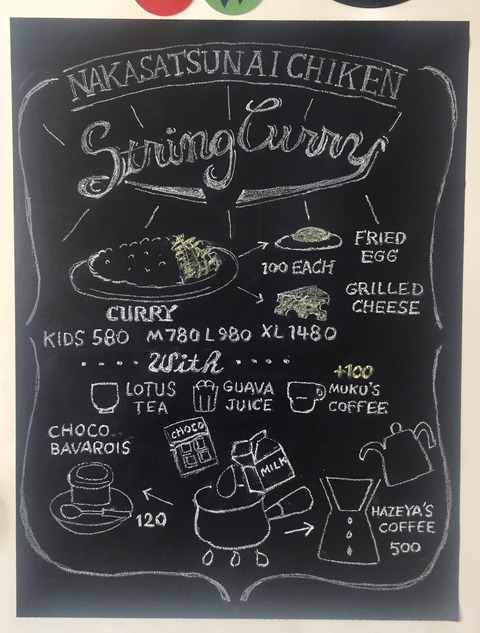 NAKASATSUNAI CHIKEN
String Curry
FRIED
EGG
100 EACH
GRILLED
CHEESE
CURRY
KIDS 580 M780 L980 XL1480
····With····
+100
LOTUS
TEA
GUAVA
JUICE
MUKU'S
COFFEE
CHOCO
BAVAROIS
CHOCO
MILK
120
HAZEYA'S
COFFEE
500